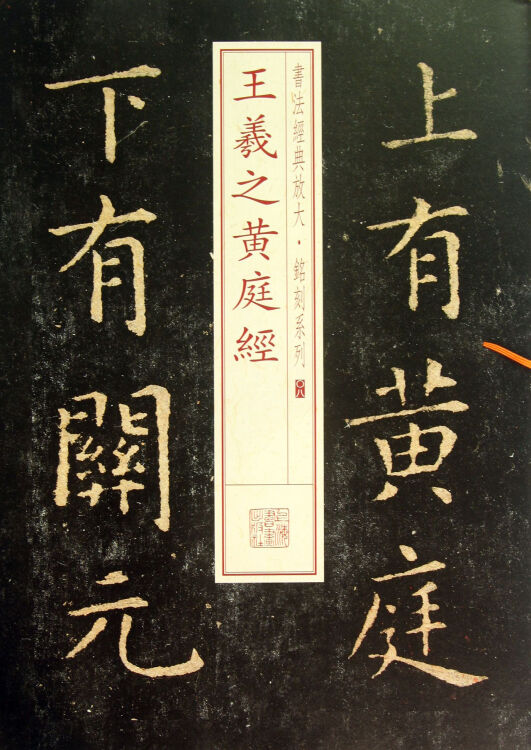 上有黄庭
書法經典放大·銘刻系列
〇八
王羲之黄庭經
上海書畫出版社
下有關元